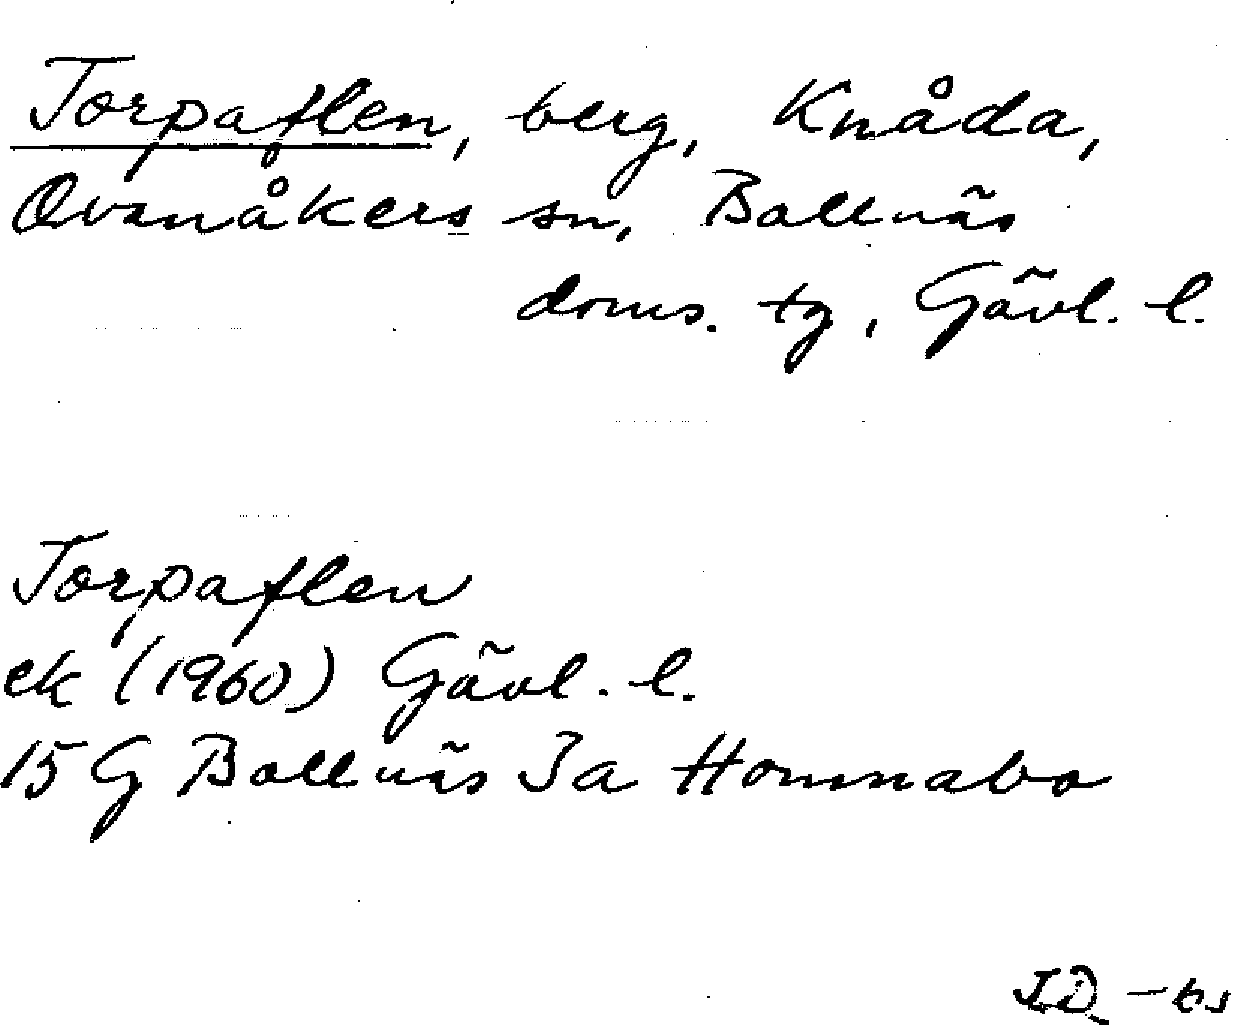 Torpaflen, berg, Knåda,
Ovanåkers sn, Bollnäs
doms. tg, Gävl. l.
Torpaflen
ek (1960) Gävl. l.
15 G Bollnäs 3a Homnabo